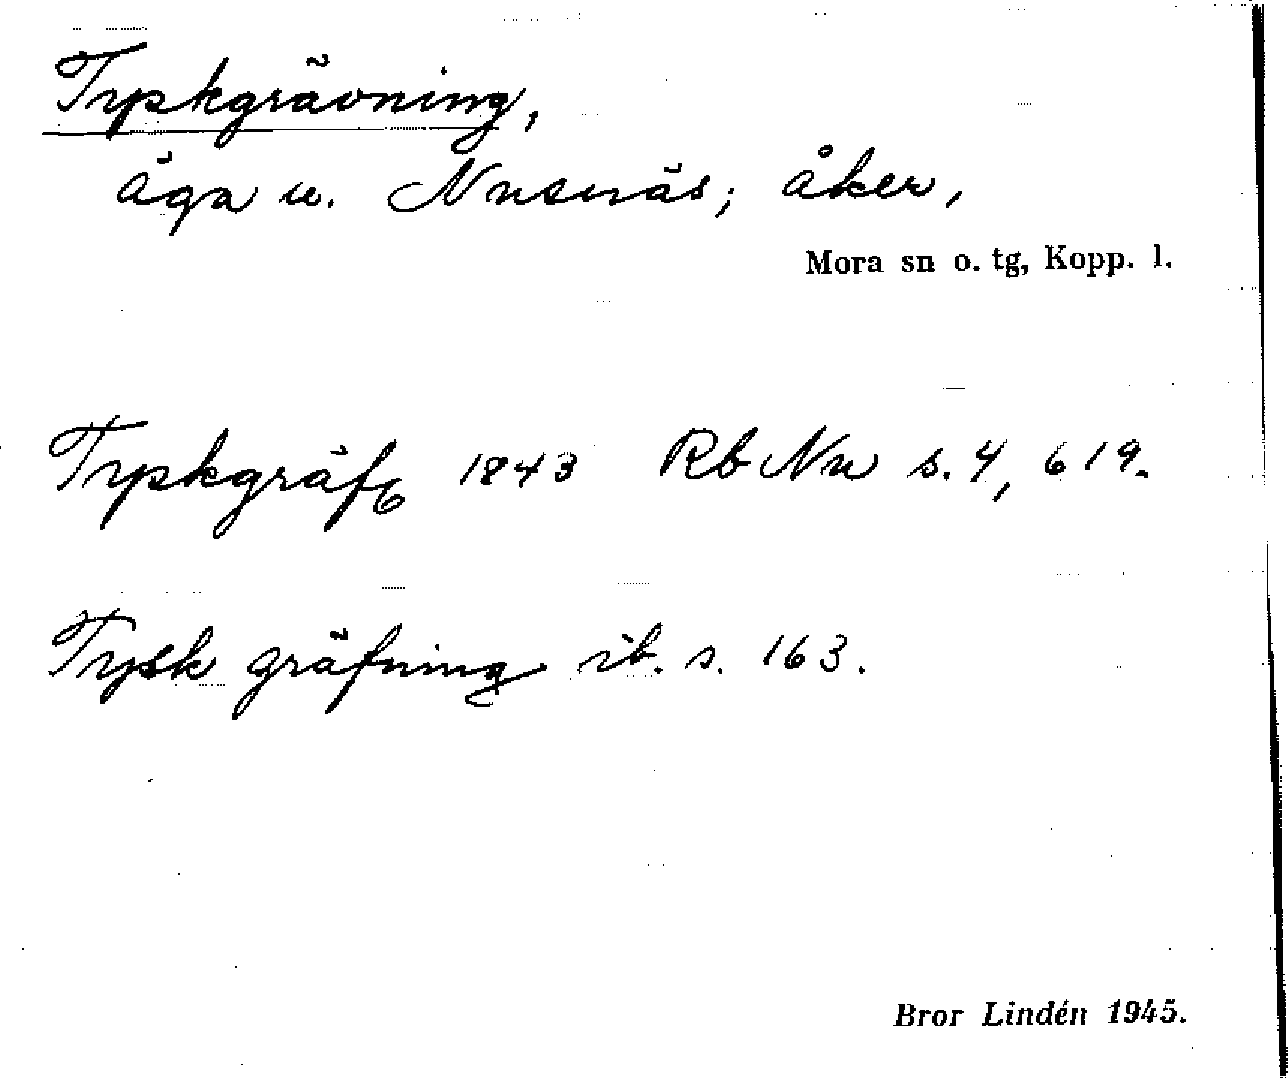 Tyskgrävning,
äga u. Nusnäs; åker,
Mora sn o. tg, Kopp. l.
Tyskgräfg 1843 Rb Nu s. 4, 619.
Tysk gräfning ib. s. 163.
Bror Lindén 1945.